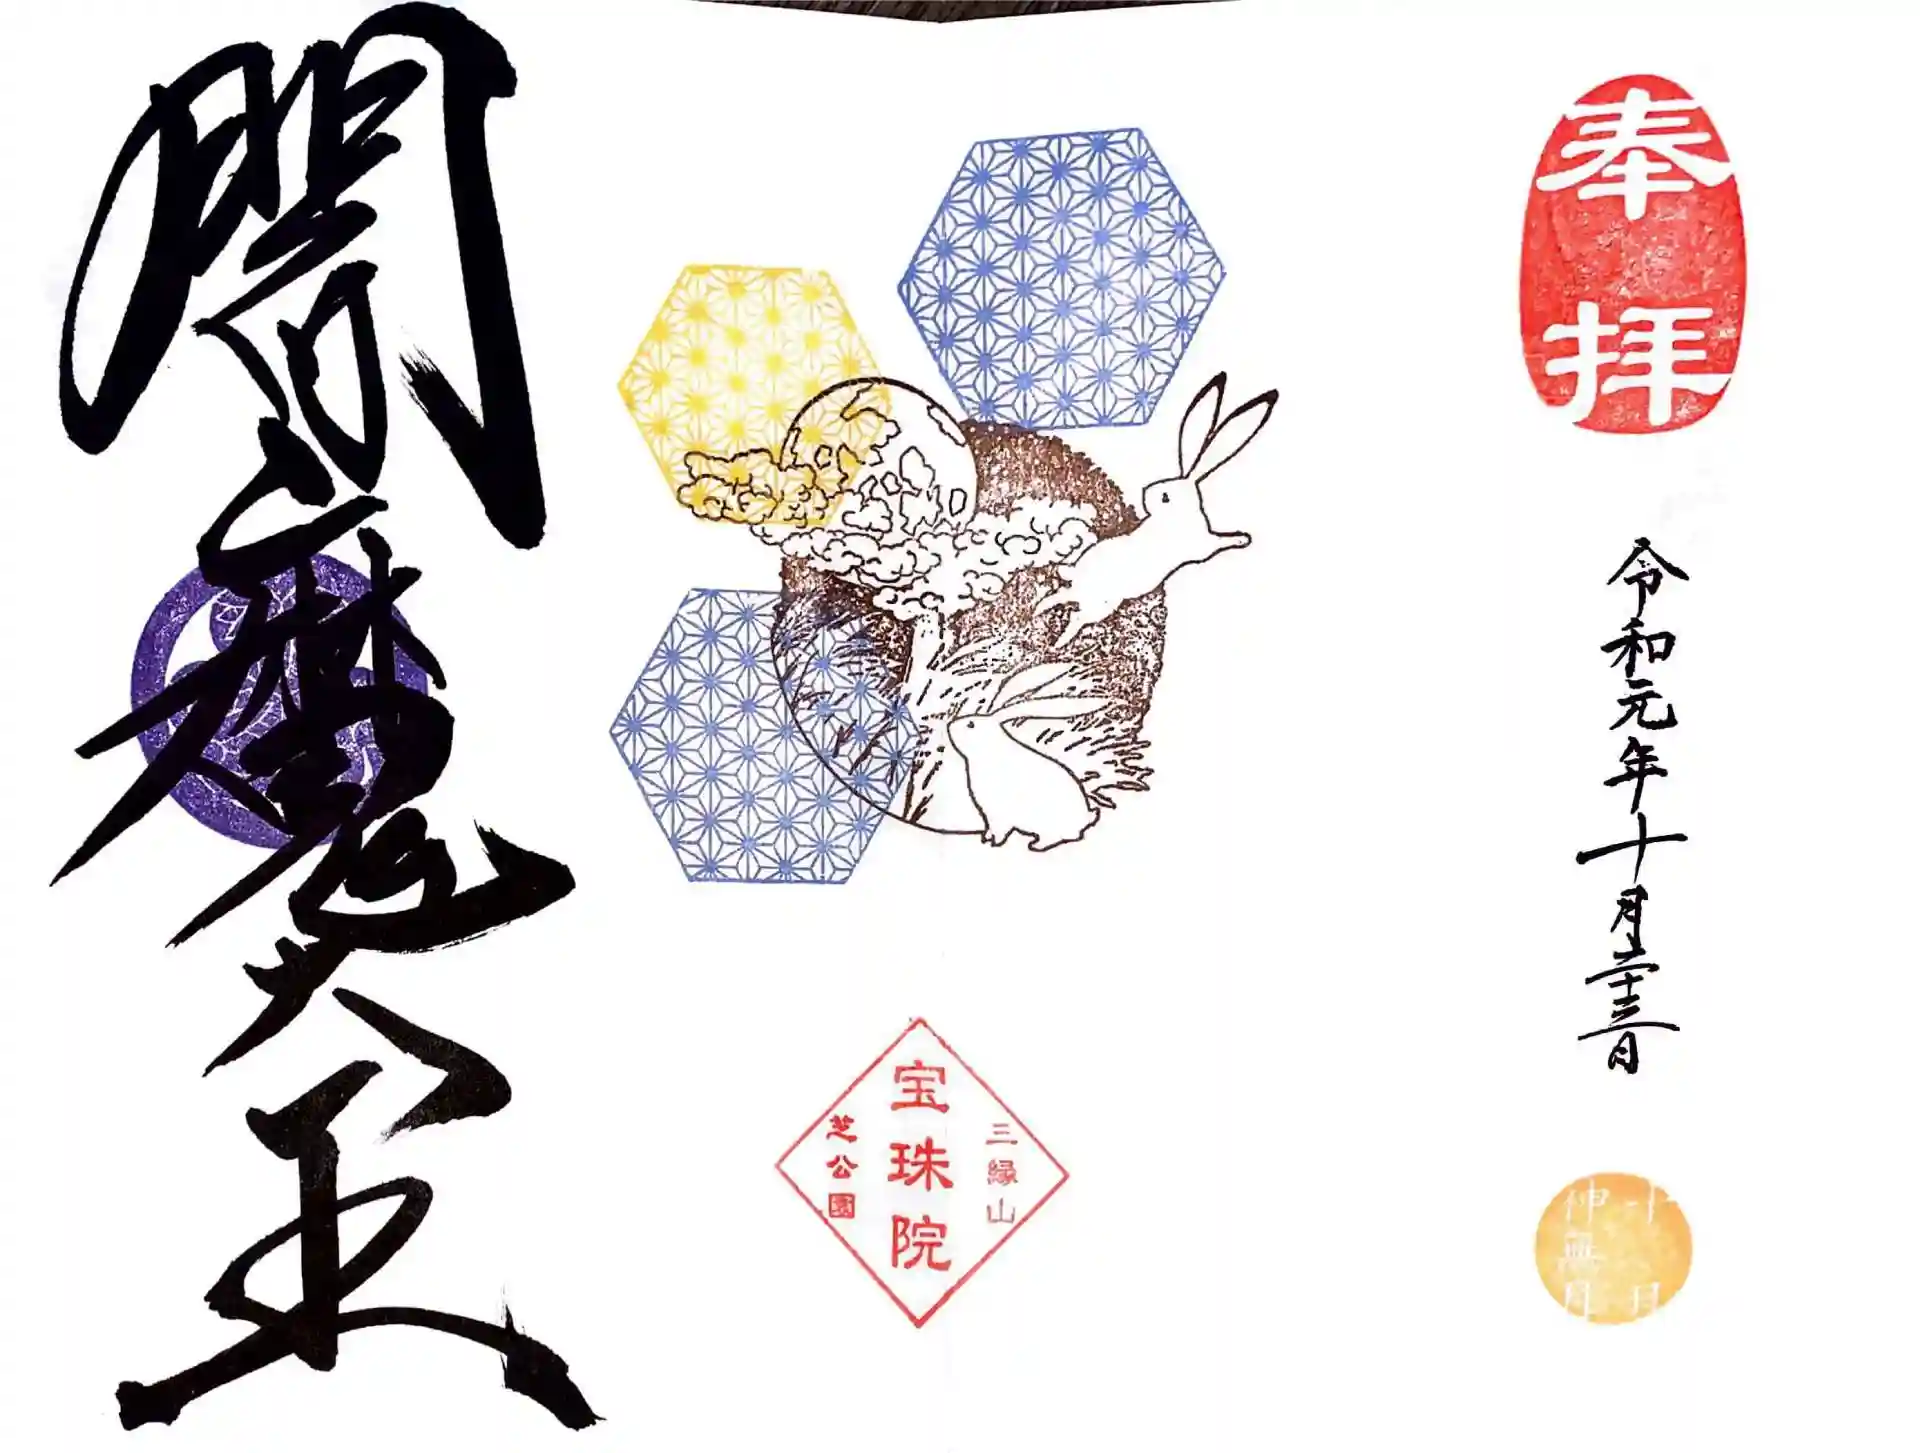 奉拝
令和元年十月二十三日
十月
神無月
三縁山
宝珠院
芝公園
閻魔大王